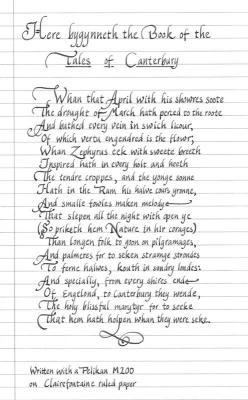 Here bygynneth the Book of the
Tales of Canterbury
Whan that April with his showres soote
The drought of March hath perced to the roote
And bathed every vein in swich licour,
Of which vertu engendred is the flowr;
Whan Zephyrus eek with sweete breeth
Inspired hath in every holt and heeth
The tendre croppes, and the yonge sonne
Hath in the Ram his halve cours yronne,
And smalle fowles maken melodye
That slepen all the night with open ye
(So priketh hem Nature in hir corages)
Than longen folk to goon on pilgramages,
And palmeres for to seken strange strondes
To ferne halwes, kouth in sondry londes:
And specially, from every shires ende
Of Engelond, to Canterbury they wende,
The holy blissful martyr for to seeke
That hem hath holpen whan they were seke.
Written with a Pelikan M200
on Clairefontaine ruled paper